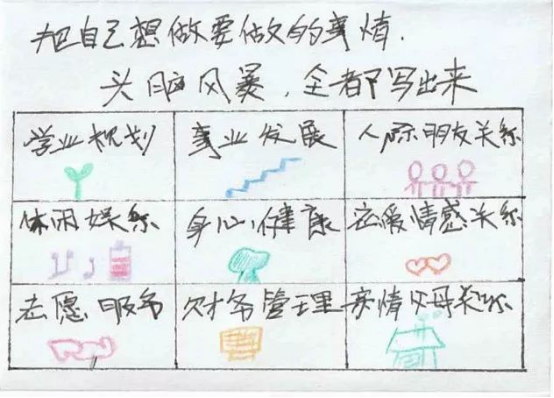 把自己想做要做的事情.
头脑风暴,全都写出来
学业规划 事业发展 人际朋友关系
休闲娱乐 身心健康 恋爱情感关系
志愿服务 财务管理 亲情父母关系